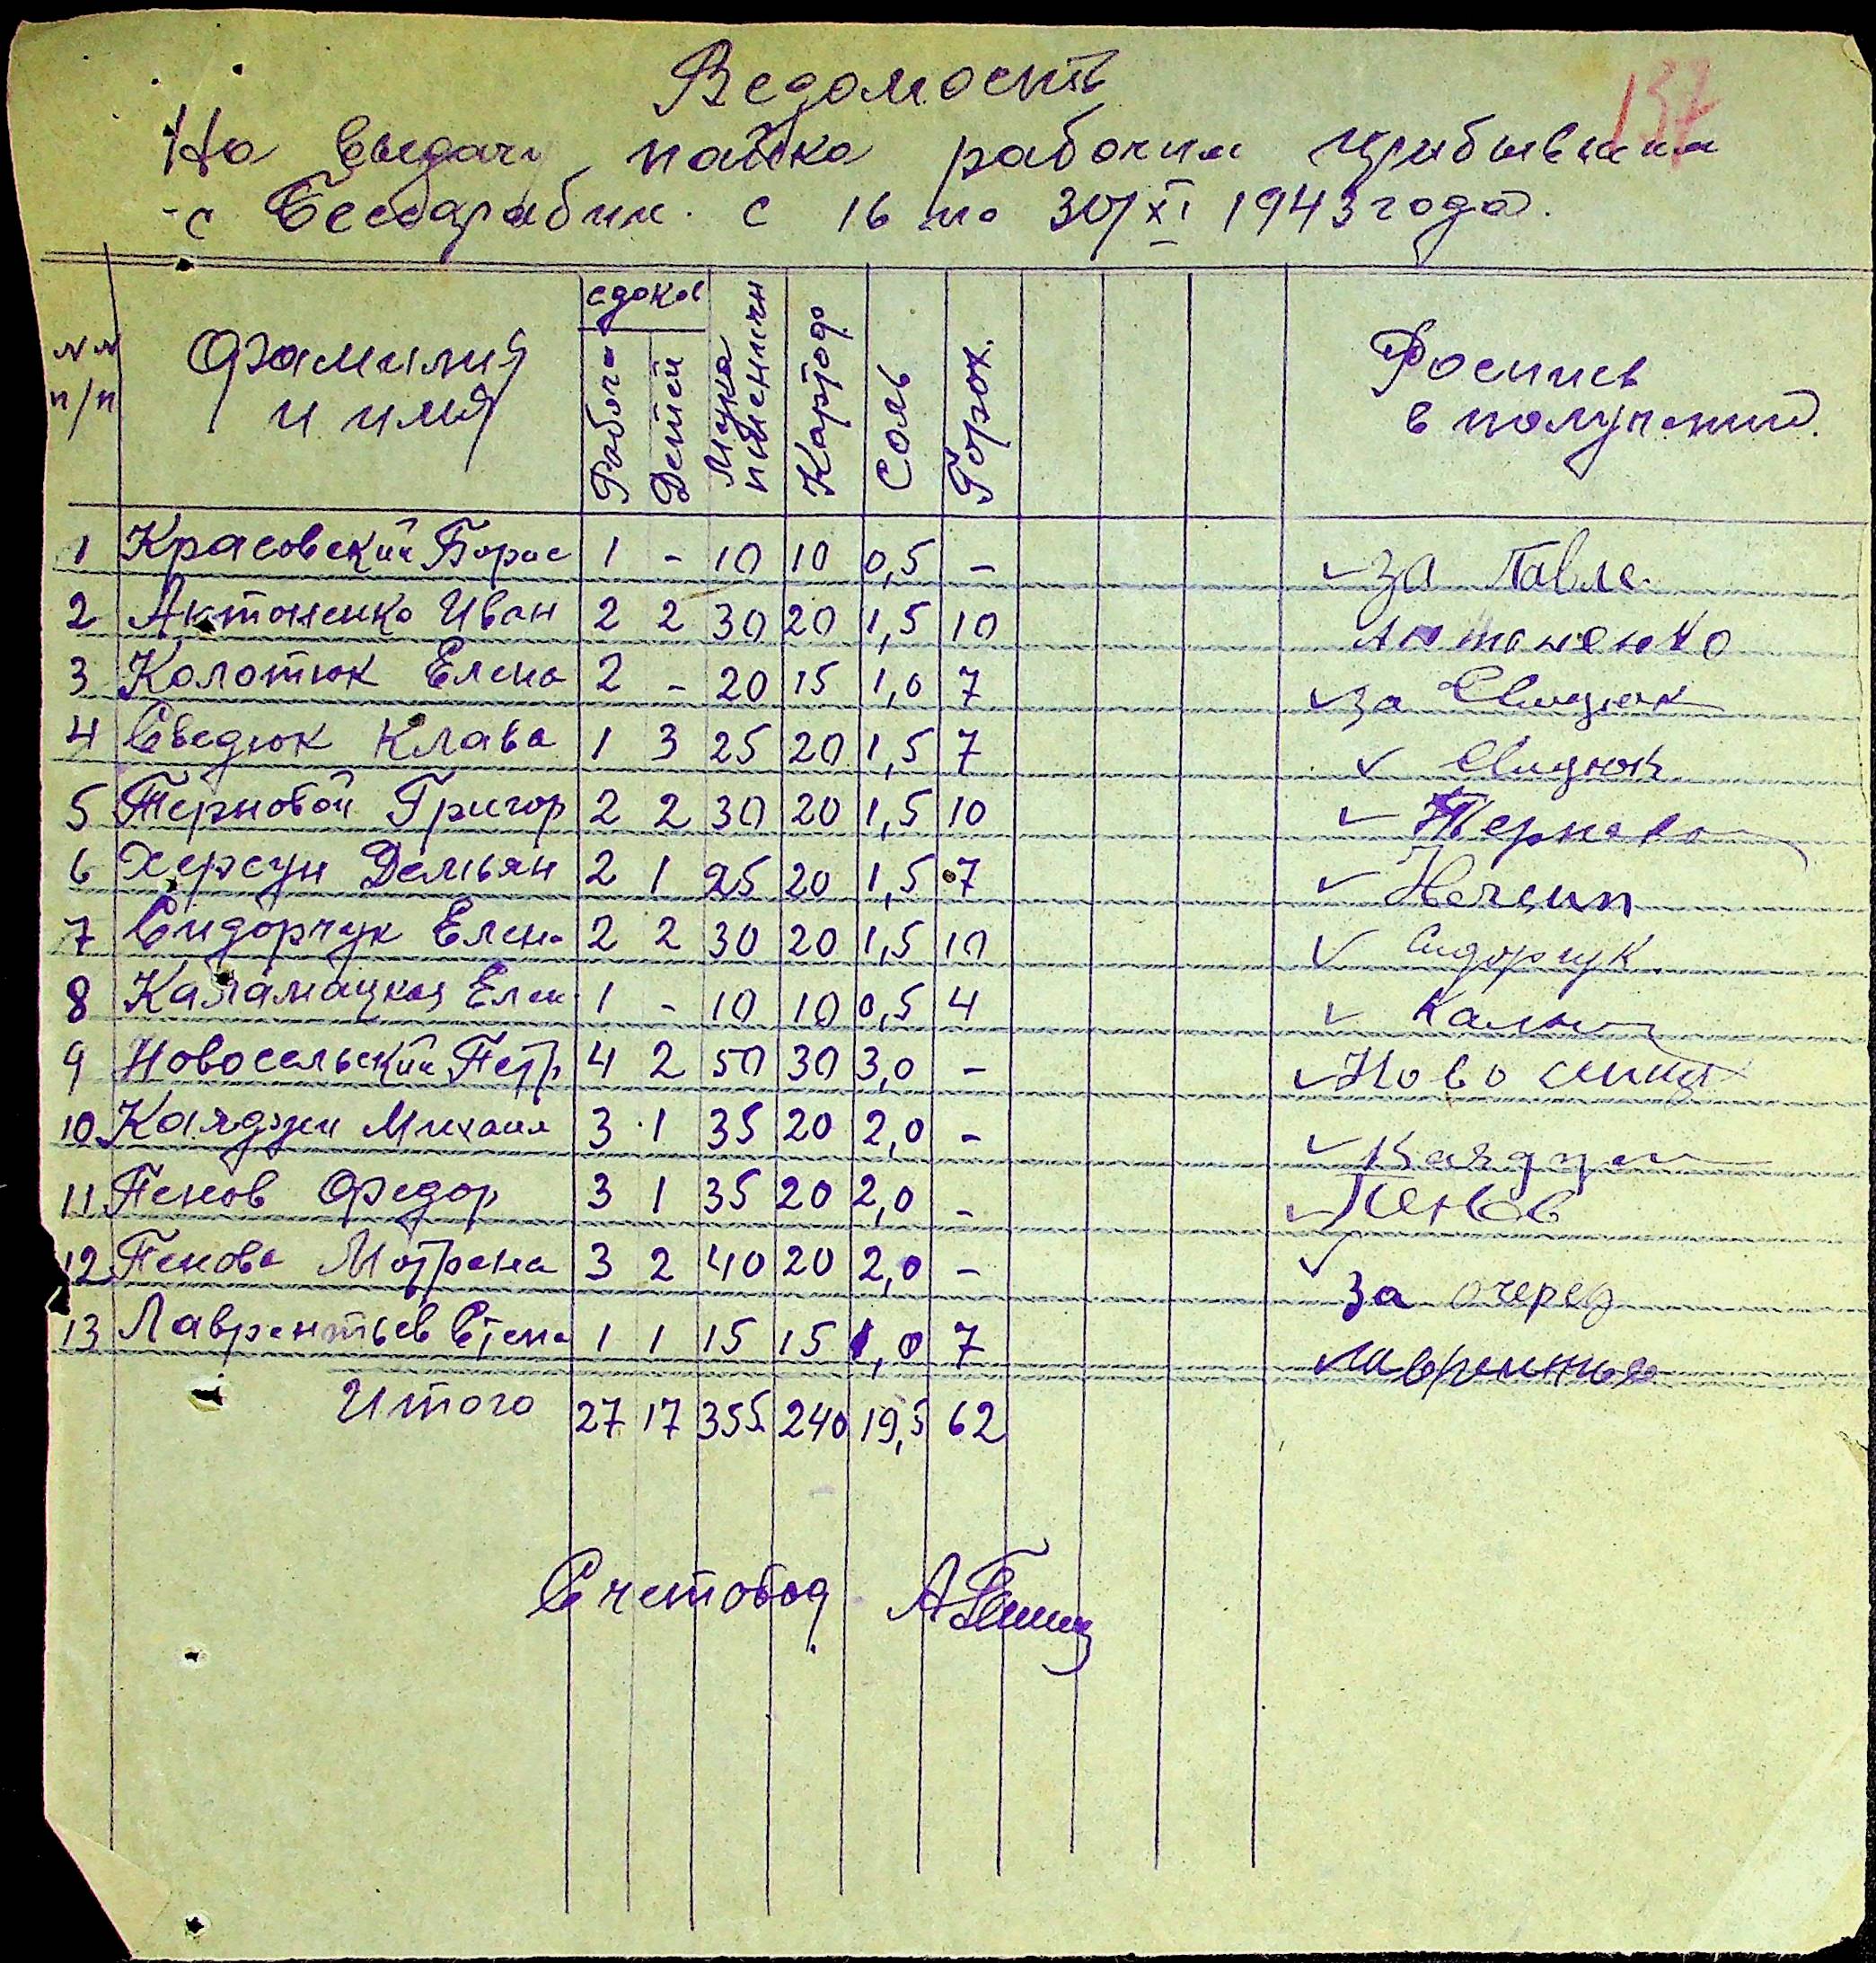 137
Ведомость
На выдачи пайка рабочим прибывшим
с Бессарабии. с 16 по 30/XI 1943 года.
№№ п/п Фамилия и имя едоков Рабоч Детей Мука пшенични Картоф Соль Горох. Роспись в получении.
1 Красовский Борис 1 - 10 10 0,5 - ✓ за Павле
2 Антоненко Иван 2 2 30 20 1,5 10 Антоненко
3 Колотюк Елена 2 - 20 15 1,0 7 ✓ за Свидюк
4 Сведюк Клава 1 3 25 20 1,5 7 ✓ Свидюк
5 Терновой Григор 2 2 30 20 1,5 10 ✓ Терново
6 Херсун Демьян 2 1 25 20 1,5 7 ✓
7 Сидорчук Елена 2 2 30 20 1,5 10 ✓ Сидорчук
8 Каламацкая Елен 1 - 10 10 0,5 4 ✓
9 Новосельский Петр 4 2 50 30 3,0 - ✓
10 Каяджи Михаил 3 1 35 20 2,0 - ✓
11 Пенов Федор 3 1 35 20 2,0 - ✓ Пенов
12 Пенова Мотрена 3 2 40 20 2,0 - ✓ за
13 Лаврентьев Степа 1 1 15 15 1,0 7 ✓
Итого 27 17 355 240 19,5 62
Счетовод